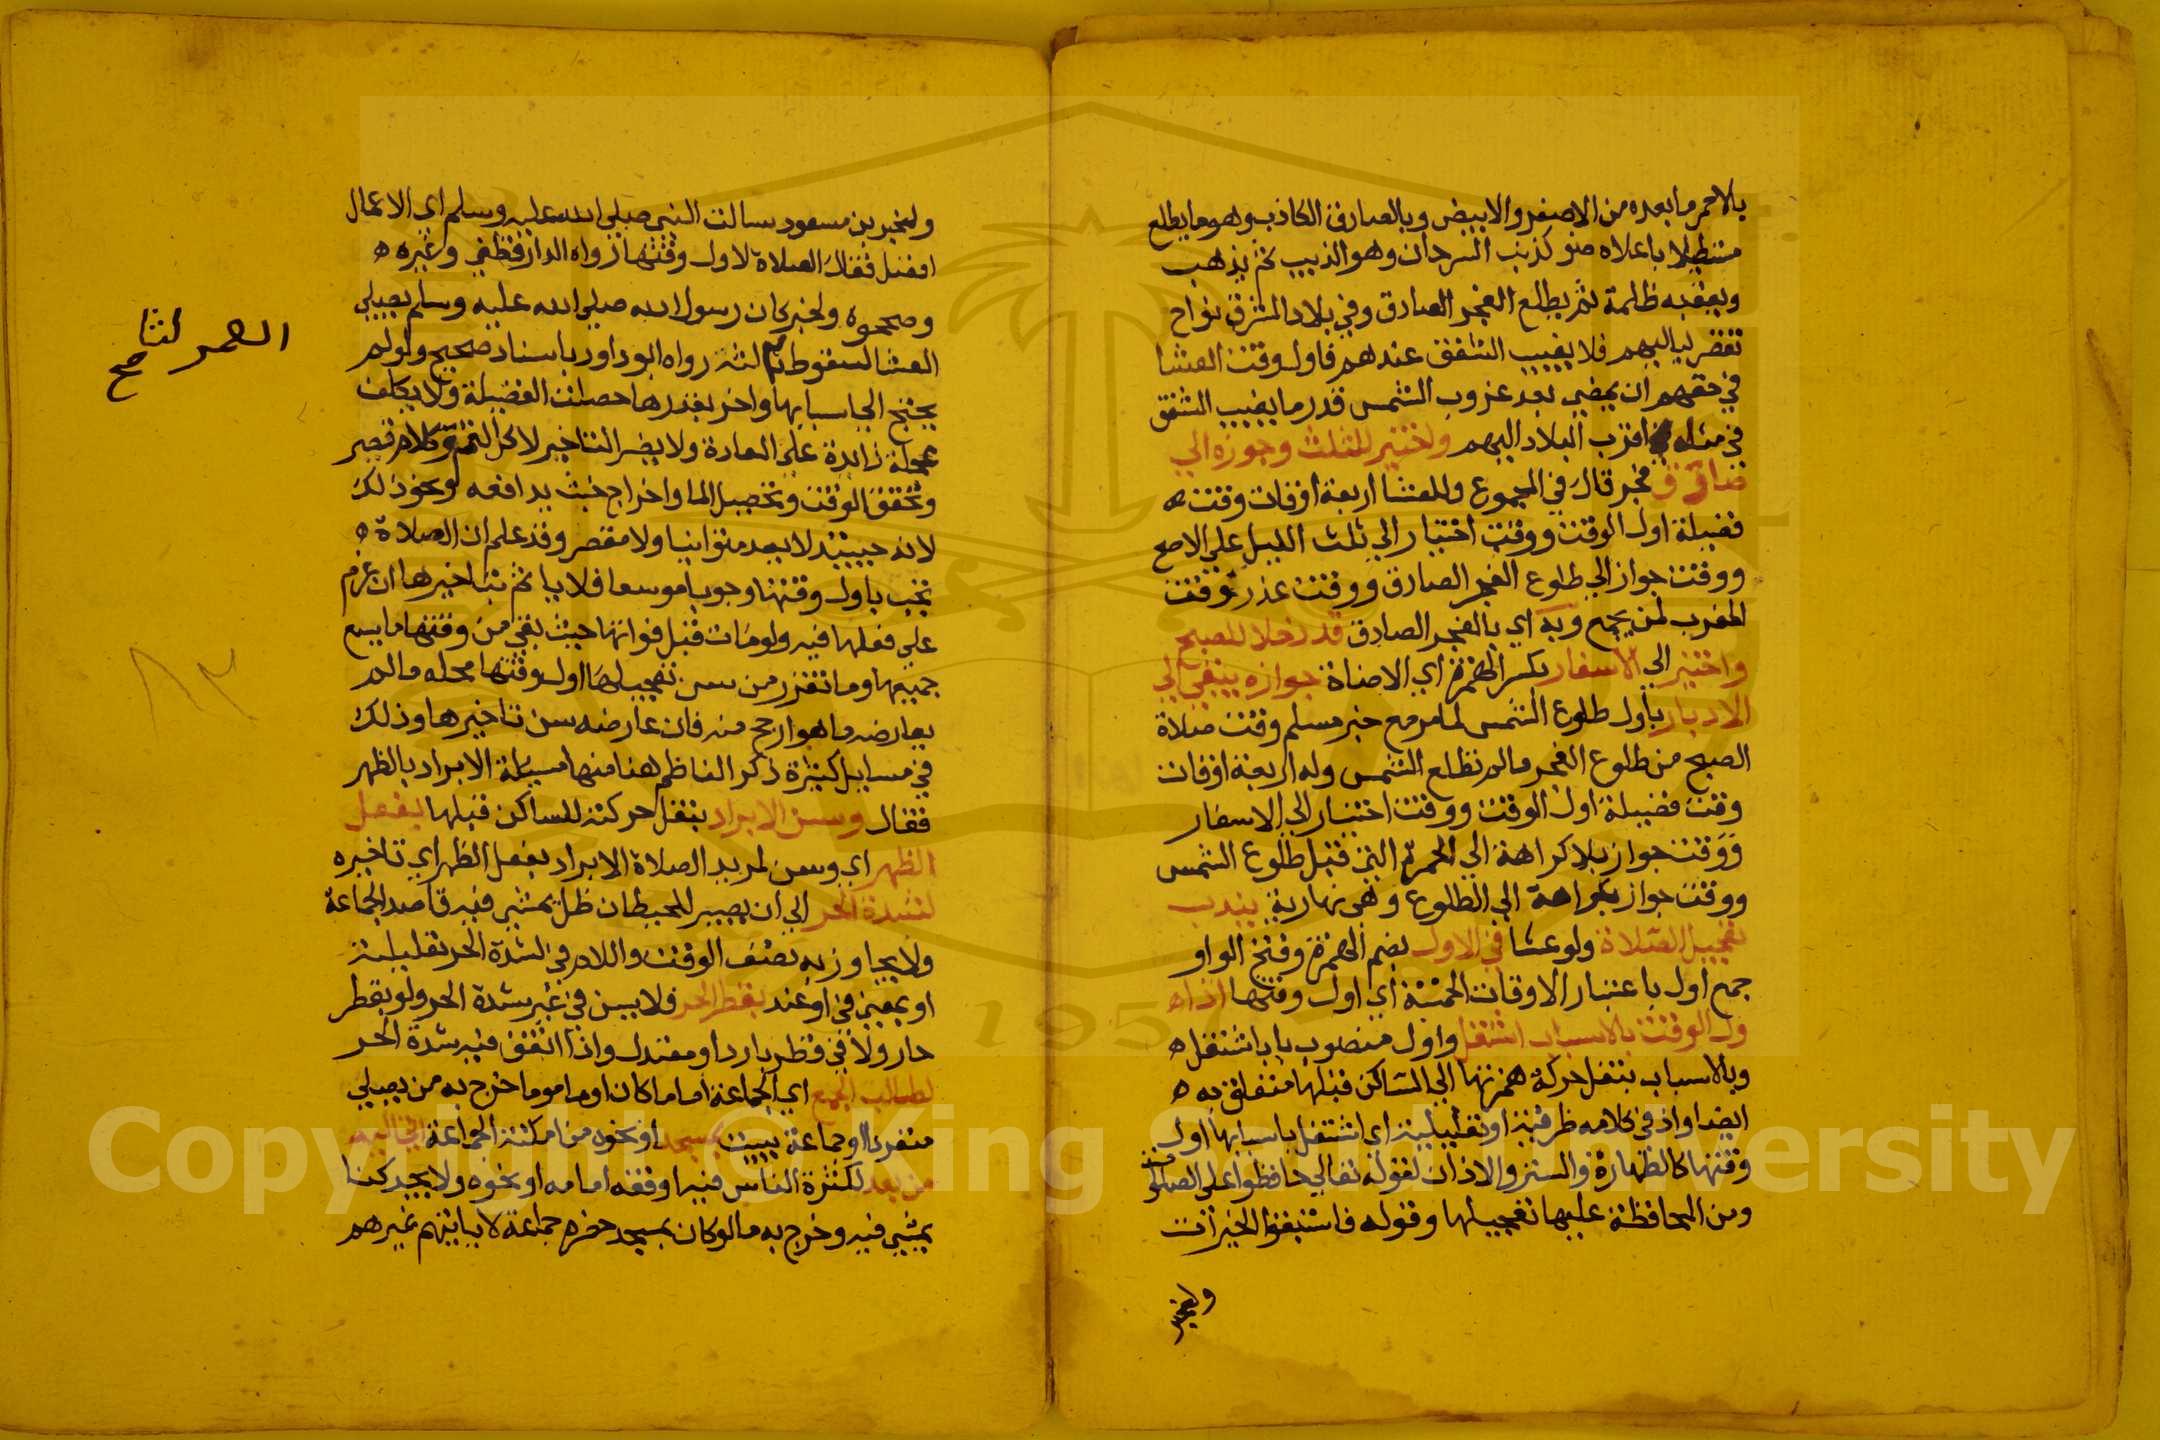 بالاحمر ما بعده من الاصفر والابيض وبالصادق الكاذب وهو ما يطلع
مستطيلا باعلاه ضو كذنب السرحان وهو الذيب ثم يذهب
ويعقبه ظلمة ثم يطلع الفجر الصادق وفي بلاد المشرق نواح
تقصر لياليهم فلا يغيب الشفق عندهم فاول وقت العشا
في حقهم ان يمضي بعد غروب الشمس قدر ما يغيب الشفق
في مثله في اقرب البلاد اليهم واختير للثلث وجوزه الي
صادق فجر قال في المجموع وللعشا اربعة اوقات وقت
فضيلة اول الوقت ووقت اختيار الي ثلث الليل علي الاصح
ووقت جواز الي طلوع الفجر الصادق ووقت عذر وقت
المغرب لمن يجمع وبه اي بالفجر الصادق قد دخلا للصبح
واختير الي الاسفار بكسر الهمزة اي الاضاة جوازه يبقي الي
الادبار باول طلوع الشمس لما مر مع خبر مسلم وقت صلاة
الصبح من طلوع الفجر ما لم تطلع الشمس وله اربعة اوقات
وقت فضيلة اول الوقت ووقت اختيار الي الاسفار
ووقت جواز بلا كراهة الي الحمرة التي قبل طلوع الشمس
ووقت جواز بكراهة الي الطلوع وهي نهارية يندب
تعجيل الصلاة ولو عشا في الاول بضم الهمزة وفتح الواو
جمع اول باعتبار الاوقات الخمسة اي اول وقتها اذا
ول الوقت بالاسباب اشتغل واول منصوب باشتغل
وبالاسباب بنقل حركة همزتها الي الساكن قبلها متعلق به
ايضا واذ في كلامه ظرفية او تعليلية اي اشتغل باسبابها اول
وقتها كالطهارة والستر والاذان لقوله تعالي حافظوا علي الصلوات
ومن المحافظة عليها تعجيلها وقوله فاستبقوا الخيرات
ولخبر
ولخبر بن مسعود سالت النبي صلي الله عليه وسلم اي الاعمال
افضل فقال الصلاة لاول وقتها رواه الدارقطني وغيره
وصححوه ولخبر كان رسول الله صلي الله عليه وسلم يصلي
العشا لسقوط القمر لثالثة رواه ابو داود باسناد صحيح ولو لم
يحتج الي اسبابها واخر بقدرها حصلت الفضيلة ولا يكلف
عجلة زايدة علي العادة ولا يضر التاخير لاكل لقم وكلام قصير
وتحقق الوقت وتحصيل الما واخراج خبث يدافعه ونحو ذلك
لانه حينيذ لا يعد متوانيا ولا مقصر وقد علم ان الصلاة
تجب باول وقتها وجوبا موسعا فلا ياثم بتاخيرها ان عزم
علي فعلها فيه ولو مات قبل فواتها حيث بقي من وقتها ما يسع
جميعها وما تقرر من سن تعجيلها اول وقتها محله ما لم
يعارضه ما هو ارجح منه فان عارضه سن تاخيرها وذلك
في مسايل كثيرة ذكر الناظم هنا منها مسيلة الابراد بالظهر
فقال وسن الابراد بنقل حركته للساكن قبلها بفعل
الظهر اي وسن لمريد الصلاة الابراد بفعل الظهر اي تاخيره
لشدة الحر الي ان يصير للحيطان ظل يمشي فيه قاصد الجماعة
ولا يجاوز به نصف الوقت واللام في لشدة الحر تعليلية
او بمعني في او عند بقطر الحر فلا يسن في غير شدة الحر ولو بقطر
حار ولا في قطر بارد او معتدل واذا اتفق فيه شدة الحر
لطالب الجمع اي الجماعة اماما كان او ماموما خرج به من يصلي
منفردا او جماعة ببيت بمسجد او نحوه من امكنة الجماعة اتي اليه
من بعد لكثرة الناس فيه او فقه امامه او نحوه ولا يجد كنا
يمشي فيه وخرج به ما لو كان بمسجد حضره جماعة لا ياتيهم غيرهم
القمر لثا
صح
Copyright © King Saud University
1957